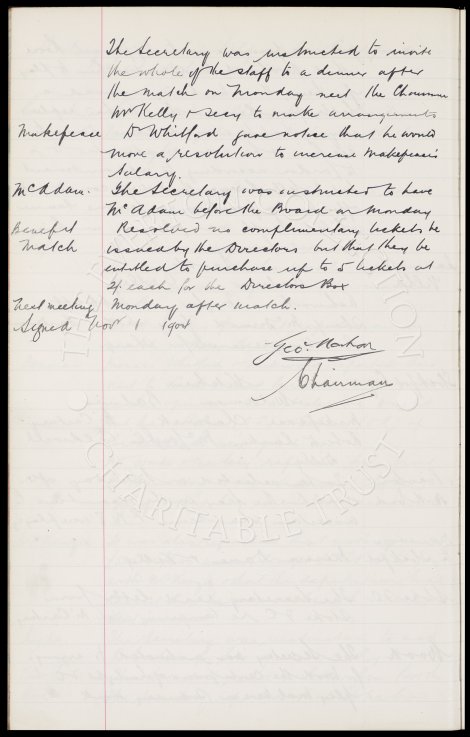 The Secretary was instructed to invite
the whole of the staff to a dinner after
the match on Monday next the Chairman
Mr Kelly & secy to make arrangements
Makepeace Dr Whitford gave notice that he would
move a resolution to increase Makepeace's
Salary.
McAdam. The Secretary was instructed to have
McAdam before the Board on Monday
Benefit Resolved no complimentary tickets be
Match issued by the Directors but that they be
entitled to purchase up to 5 tickets at
2/- each for the Directors Box
Next meeting Monday after match.
Signed Novr 1 1904
Geo. Mahon
Chairman
CHARITABLE TRUST